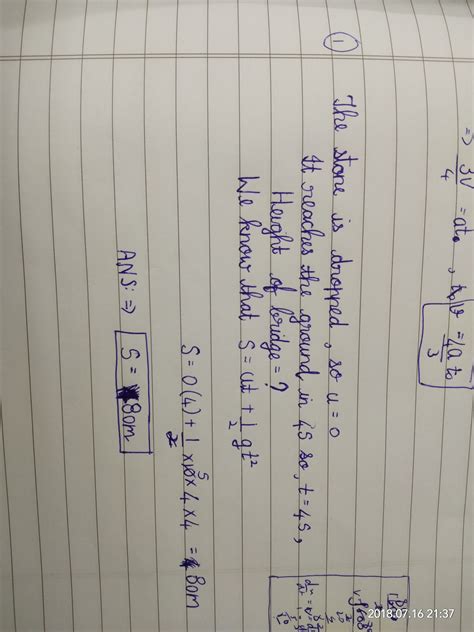 ⇒ 3V/4 = at₀ , V = 4at₀/3
① The stone is dropped, so u = 0
It reaches the ground in 4S so, t = 4S,
Height of bridge = ?
We know that S = ut + 1/2 gt²
S = 0(4) + 1/2 × 10 × 4 × 4 = 80m
5
ANS: ⇒ S = 80m
2018.07.16 21:37